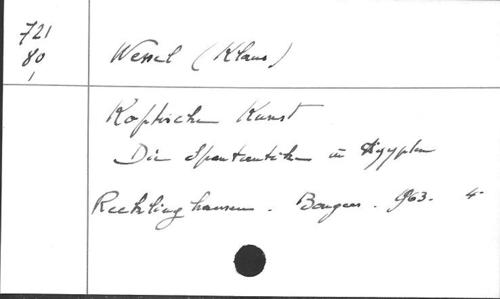 721
80
1
Wessel (Klaus)
Koptische Kunst
Die Spätantike in Ägypten
Recklinghausen. Bongers. 963. 4°